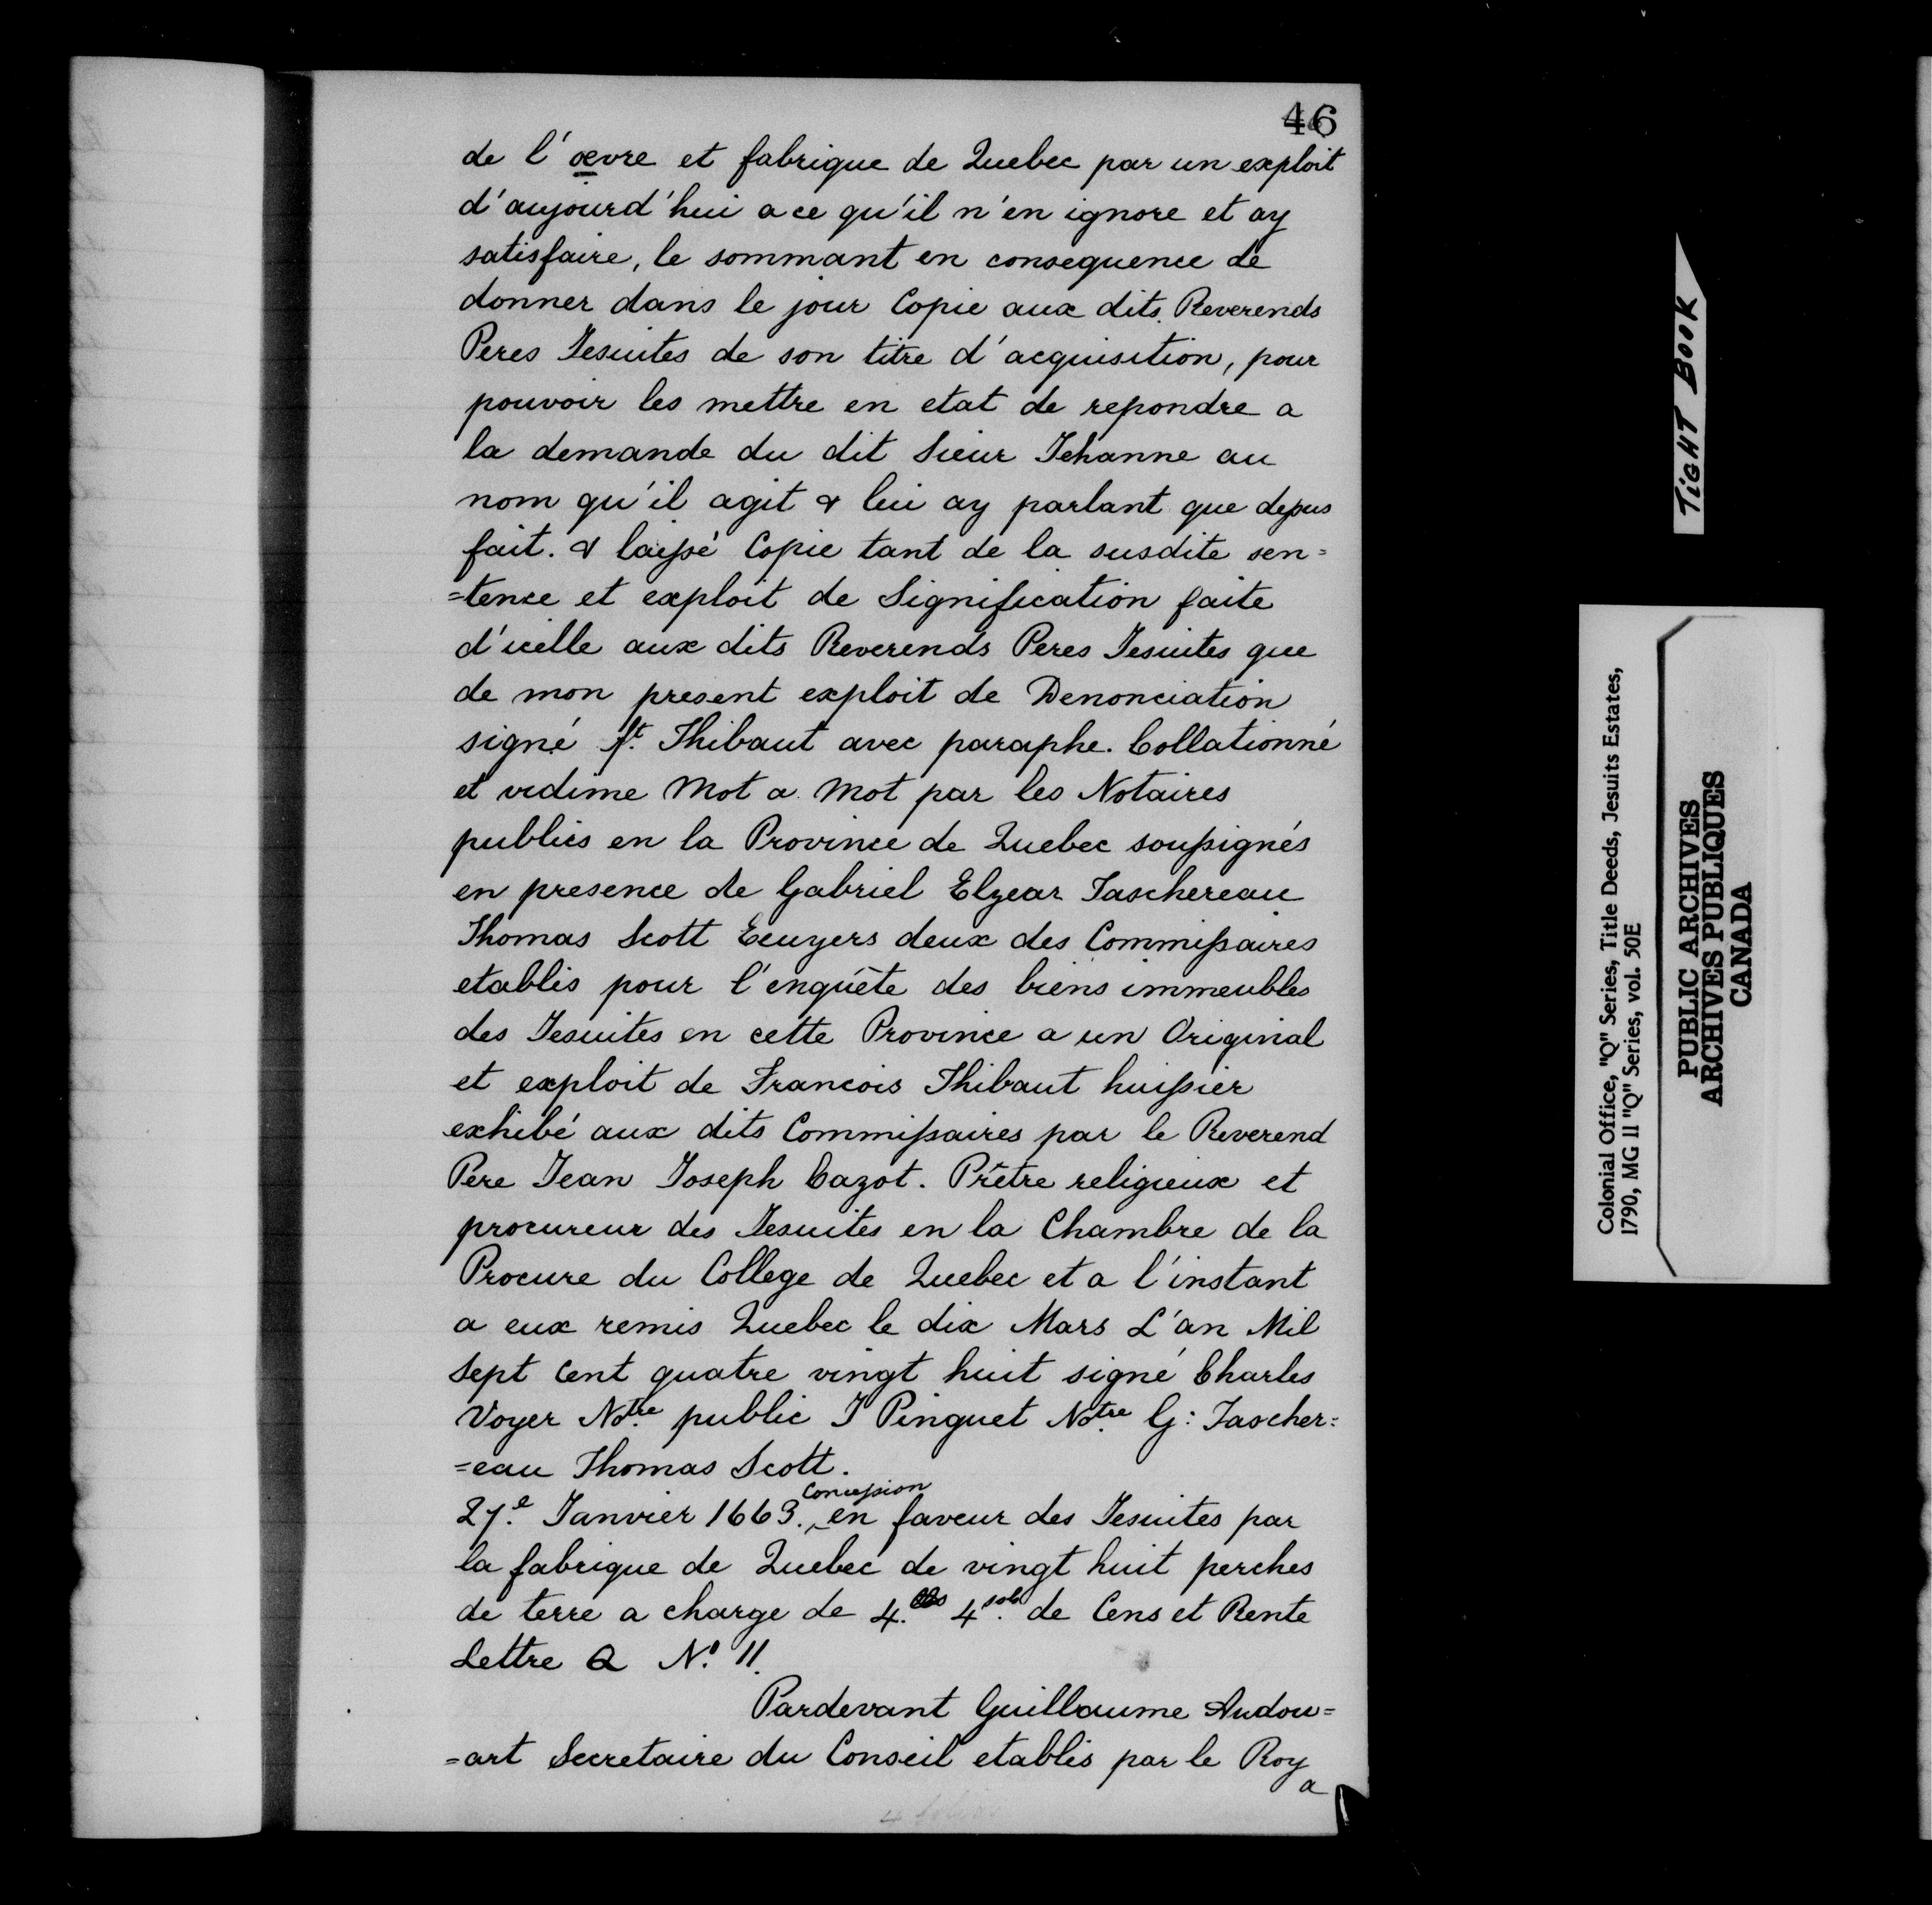 46
de l'œvre et fabrique de Quebec par un exploit
d'aujourd'hui a ce qu'il n'en ignore et ay
satisfaire, le sommant en consequence de
donner dans le jour Copie aux dits Reverends
Peres Jesuites de son titre d'acquisition, pour
pouvoir les mettre en etat de repondre a
la demande du dit Sieur Jehanne au
nom qu'il agit & lui ay parlant que depus
fait. & laissé Copie tant de la susdite sen=
=tence et exploit de Signification faite
d'icelle aux dits Reverends Peres Jesuites que
de mon present exploit de Denonciation
signé ft. Thibaut avec paraphe. Collationné
et vidime Mot a Mot par les Notaires
publics en la Province de Quebec soussignés
en presence de Gabriel Elzear Taschereau
Thomas Scott Ecuyers deux des Commissaires
etablis pour l'enquête des biens immeubles
des Jesuites en cette Province a un Original
et exploit de Francois Thibaut huissier
exhibé aux dits Commissaires par le Reverend
Pere Jean Joseph Cazot. Prêtre religieux et
procureur des Jesuites en la Chambre de la
Procure du College de Quebec et a l'instant
a eux remis Quebec le dix Mars L'an Mil
Sept Cent quatre vingt huit signé Charles
Voyer Notre public J Pinguet Notre G: Tascher=
=eau Thomas Scott.
Concession
27.e Janvier 1663. en faveur des Jesuites par
la fabrique de Quebec de vingt huit perches
de terre a charge de 4. 4 sols de Cens et Rente
Lettre Q No. 11.
Pardevant Guillaume Audou=
=art Secretaire du Conseil etablis par le Roy
a
TIGHT BOOK
Colonial Office, "Q" Series, Title Deeds, Jesuits Estates,
1790, MG 11 "Q" Series, vol. 50E
PUBLIC ARCHIVES
ARCHIVES PUBLIQUES
CANADA